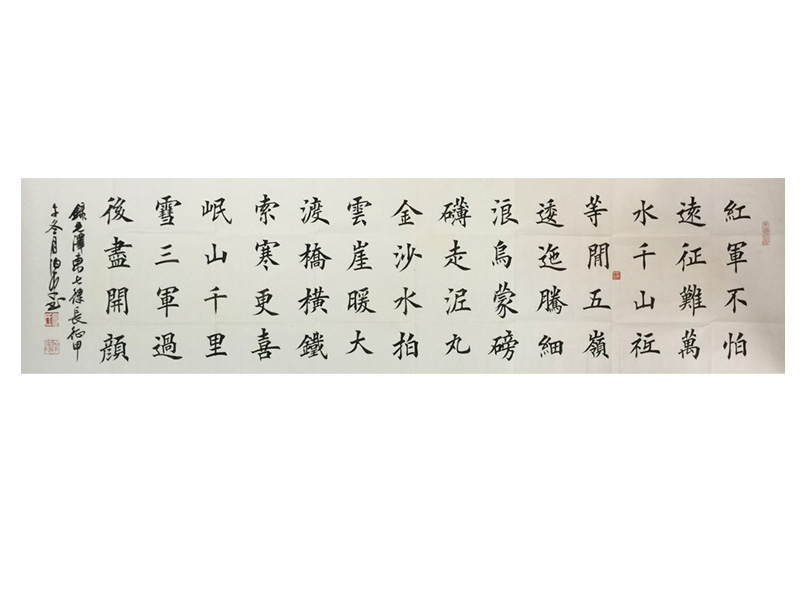 紅軍不怕
遠征難萬
水千山祇
等閒五嶺
逶迤騰細
浪烏蒙磅
礴走泥丸
金沙水拍
雲崖暖大
渡橋橫鐵
索寒更喜
岷山千里
雪三軍過
後盡開顏
錄毛澤東七律長征甲
午冬月